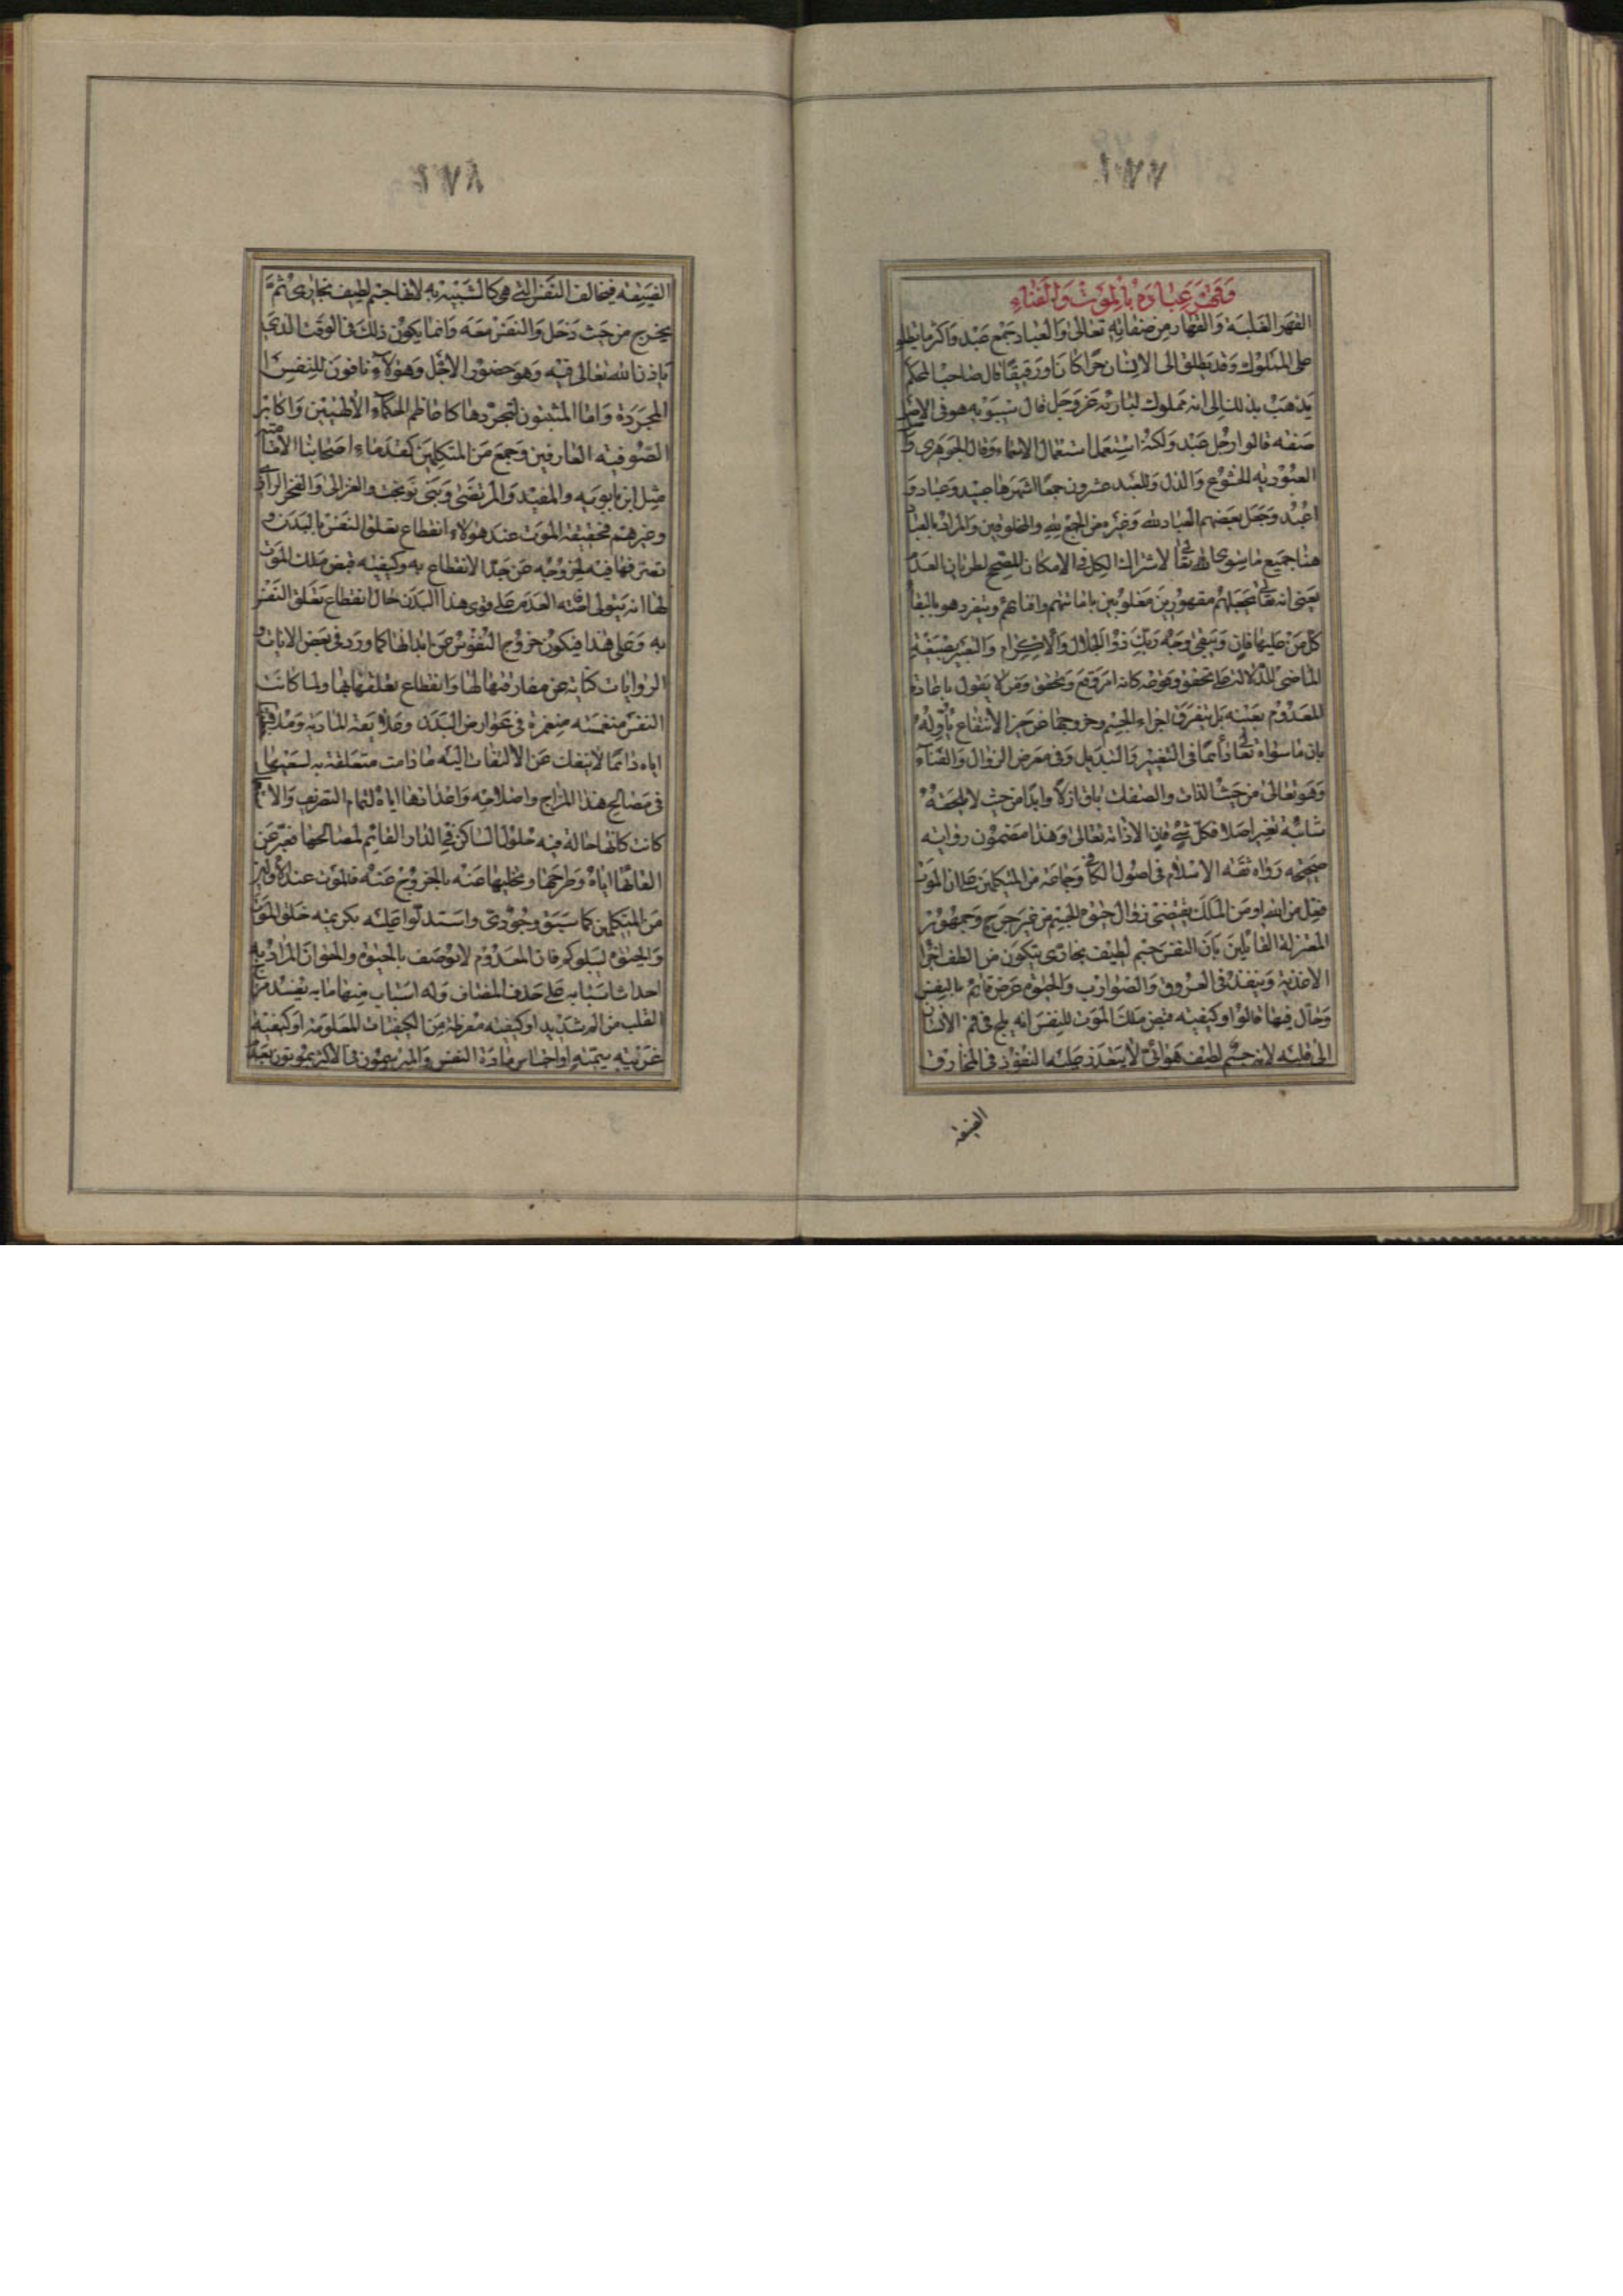 ١٧٧
وَقَهَرَ عِبَادَهُ بِالْمَوْتِ وَالْفَنَاءِ
القهر الغلبة والقهار من صفاته تعالى والعباد جمع عبد واكثر ما يطلق
على المملوك وقد يطلق الى الانسان حرا كان او رقيقا قال صاحب المحكم
يذهب بذلك الى انه مملوك لباريه عز وجل قال سيبويه هو فى الاصل
صفة قالوا رجل عبد ولكنه استعمل استعمال الاسماء وقال الجوهرى
العبودية الخشوع والذل وللعبد عشرون جمعا اشهرها عبيد وعباد و
اعبد وجعل بعضهم العباد لله وغيره من الجمع لله والمخلوقين والمراد بالعباد
هنا جميع ما سوى الله تعالى لاشتراك الكل فى الامكان المصحح لطريان العدم
يعنى انه تعالى يجعلهم مقهورين مغلوبين باماتتهم وافنائهم ويتفرد هو بالبقاء
كل من عليها فان ويبقى وجه ربك ذو الجلال والاكرام والتعبير بصيغة
الماضى للدلالة على تحقق وقوعه كانه امر وقع وتحقق ومن لا يقول باعادة
المعدوم بعينه بل بتفرق اجزاء الجسم وخروجها عن حيز الانتفاع يأوله
بان ما سواه تعالى دائما فى التغيير والتبديل وفى معرض الزوال والفناء
وهو تعالى من حيث الذات والصفات باق ازلا وابدا من حيث لا يلحقه
شائبة تغير اصلا فكل شئ فان الا ذاته تعالى وهذا مضمون رواية
صحيحة رواه ثقة الاسلام فى اصول الكافى وجماعة من المتكلمين على ان الموت
فعل من الله او من الملك يقتضى زوال حيوة الجسم من غير جرح وجمهور
المعتزلة القائلين بان النفس جسم لطيف بخارى يتكون من الطف اجزاء
الاغذية وينفذ فى العروق والضوارب والحيوة عرض قائم بالنفس
وحال فيها قالوا وكيفية قبض ملك الموت للنفس انه يلج فى فم الانسان
الى قلبه لانه جسم لطيف هوائى لا يتعذر عليه النفوذ فى المخارق
الضيقة
١٧٨
الضيقة فيخالف النفس التى هى كالشبيه به لانها جسم لطيف بخارى ثم
يخرج من حيث دخل والنفس معه وانما يكون ذلك فى الوقت الذى
ياذن الله تعالى فيه وهو حضور الاجل وهؤلاء نافون للنفس
المجردة واما المثبتون لتجردها كاعاظم الحكماء الالهيين واكابر
الصوفية العارفين وجمع من المتكلمين كقدماء اصحابنا الامامية
مثل ابن بابويه والمفيد والمرتضى وبنى نوبخت والغزالى والفخر الرازى
وغيرهم فحقيقة الموت عند هؤلاء انقطاع تعلق النفس بالبدن و
تصرفها فيه لخروجه عن حد الانتفاع به وكيفية قبض ملك الموت
لها انه يتولى افاضة العدم على قوى هذا البدن حال انقطاع تعلق النفس
به وعلى هذا فيكون خروج النفوس عن ابدانها كما ورد فى بعض الايات و
الروايات كناية عن مفارقتها لها وانقطاع تعلقها بها ولما كانت
النفس منغمسة منغمرة فى عوارض البدن وعلائقه المادية
اياه دائما لا ينفك عن الالتفات اليه ما دامت متعلقة به لسعيها
فى مصالح هذا المزاج واصلاحه واغذائها اياه لتمام التصرف
كانت كانها حالة فيه حلول الساكن فى الدار القائم لمصالحها فعبر عن
القائها اياه وطرحها وتخليها عنه بالخروج عنه فالموت عند الاولين
من المتكلمين كما سبق وجودى واستدلوا عليه بكريمة خلق الموت
والحيوة ليبلوكم فان المعدوم لا يوصف بالخلق والحق ان المراد به
احداث اسبابه على حذف المضاف وله اسباب منها ما به يفسد مزاج
القلب من الم شديد او كيفية مفرطة من الكيفيات المعلومة او كيفية
غريبة سمية او احتباس مادة النفس والمبرسمون فى الاكثر يموتون بغتة